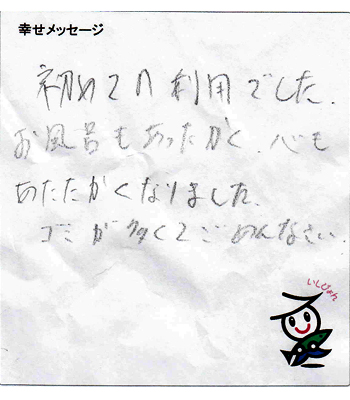 幸せメッセージ
初めての利用でした.
お風呂もあったかく、心も
あたたかくなりました.
ゴミが多くてごめんなさい.
いしぴょん